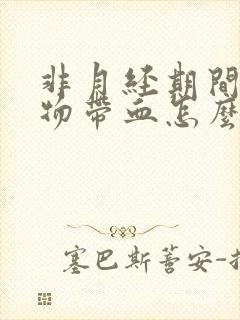 非月经期間
物帶血怎麼
塞巴斯蒂安-